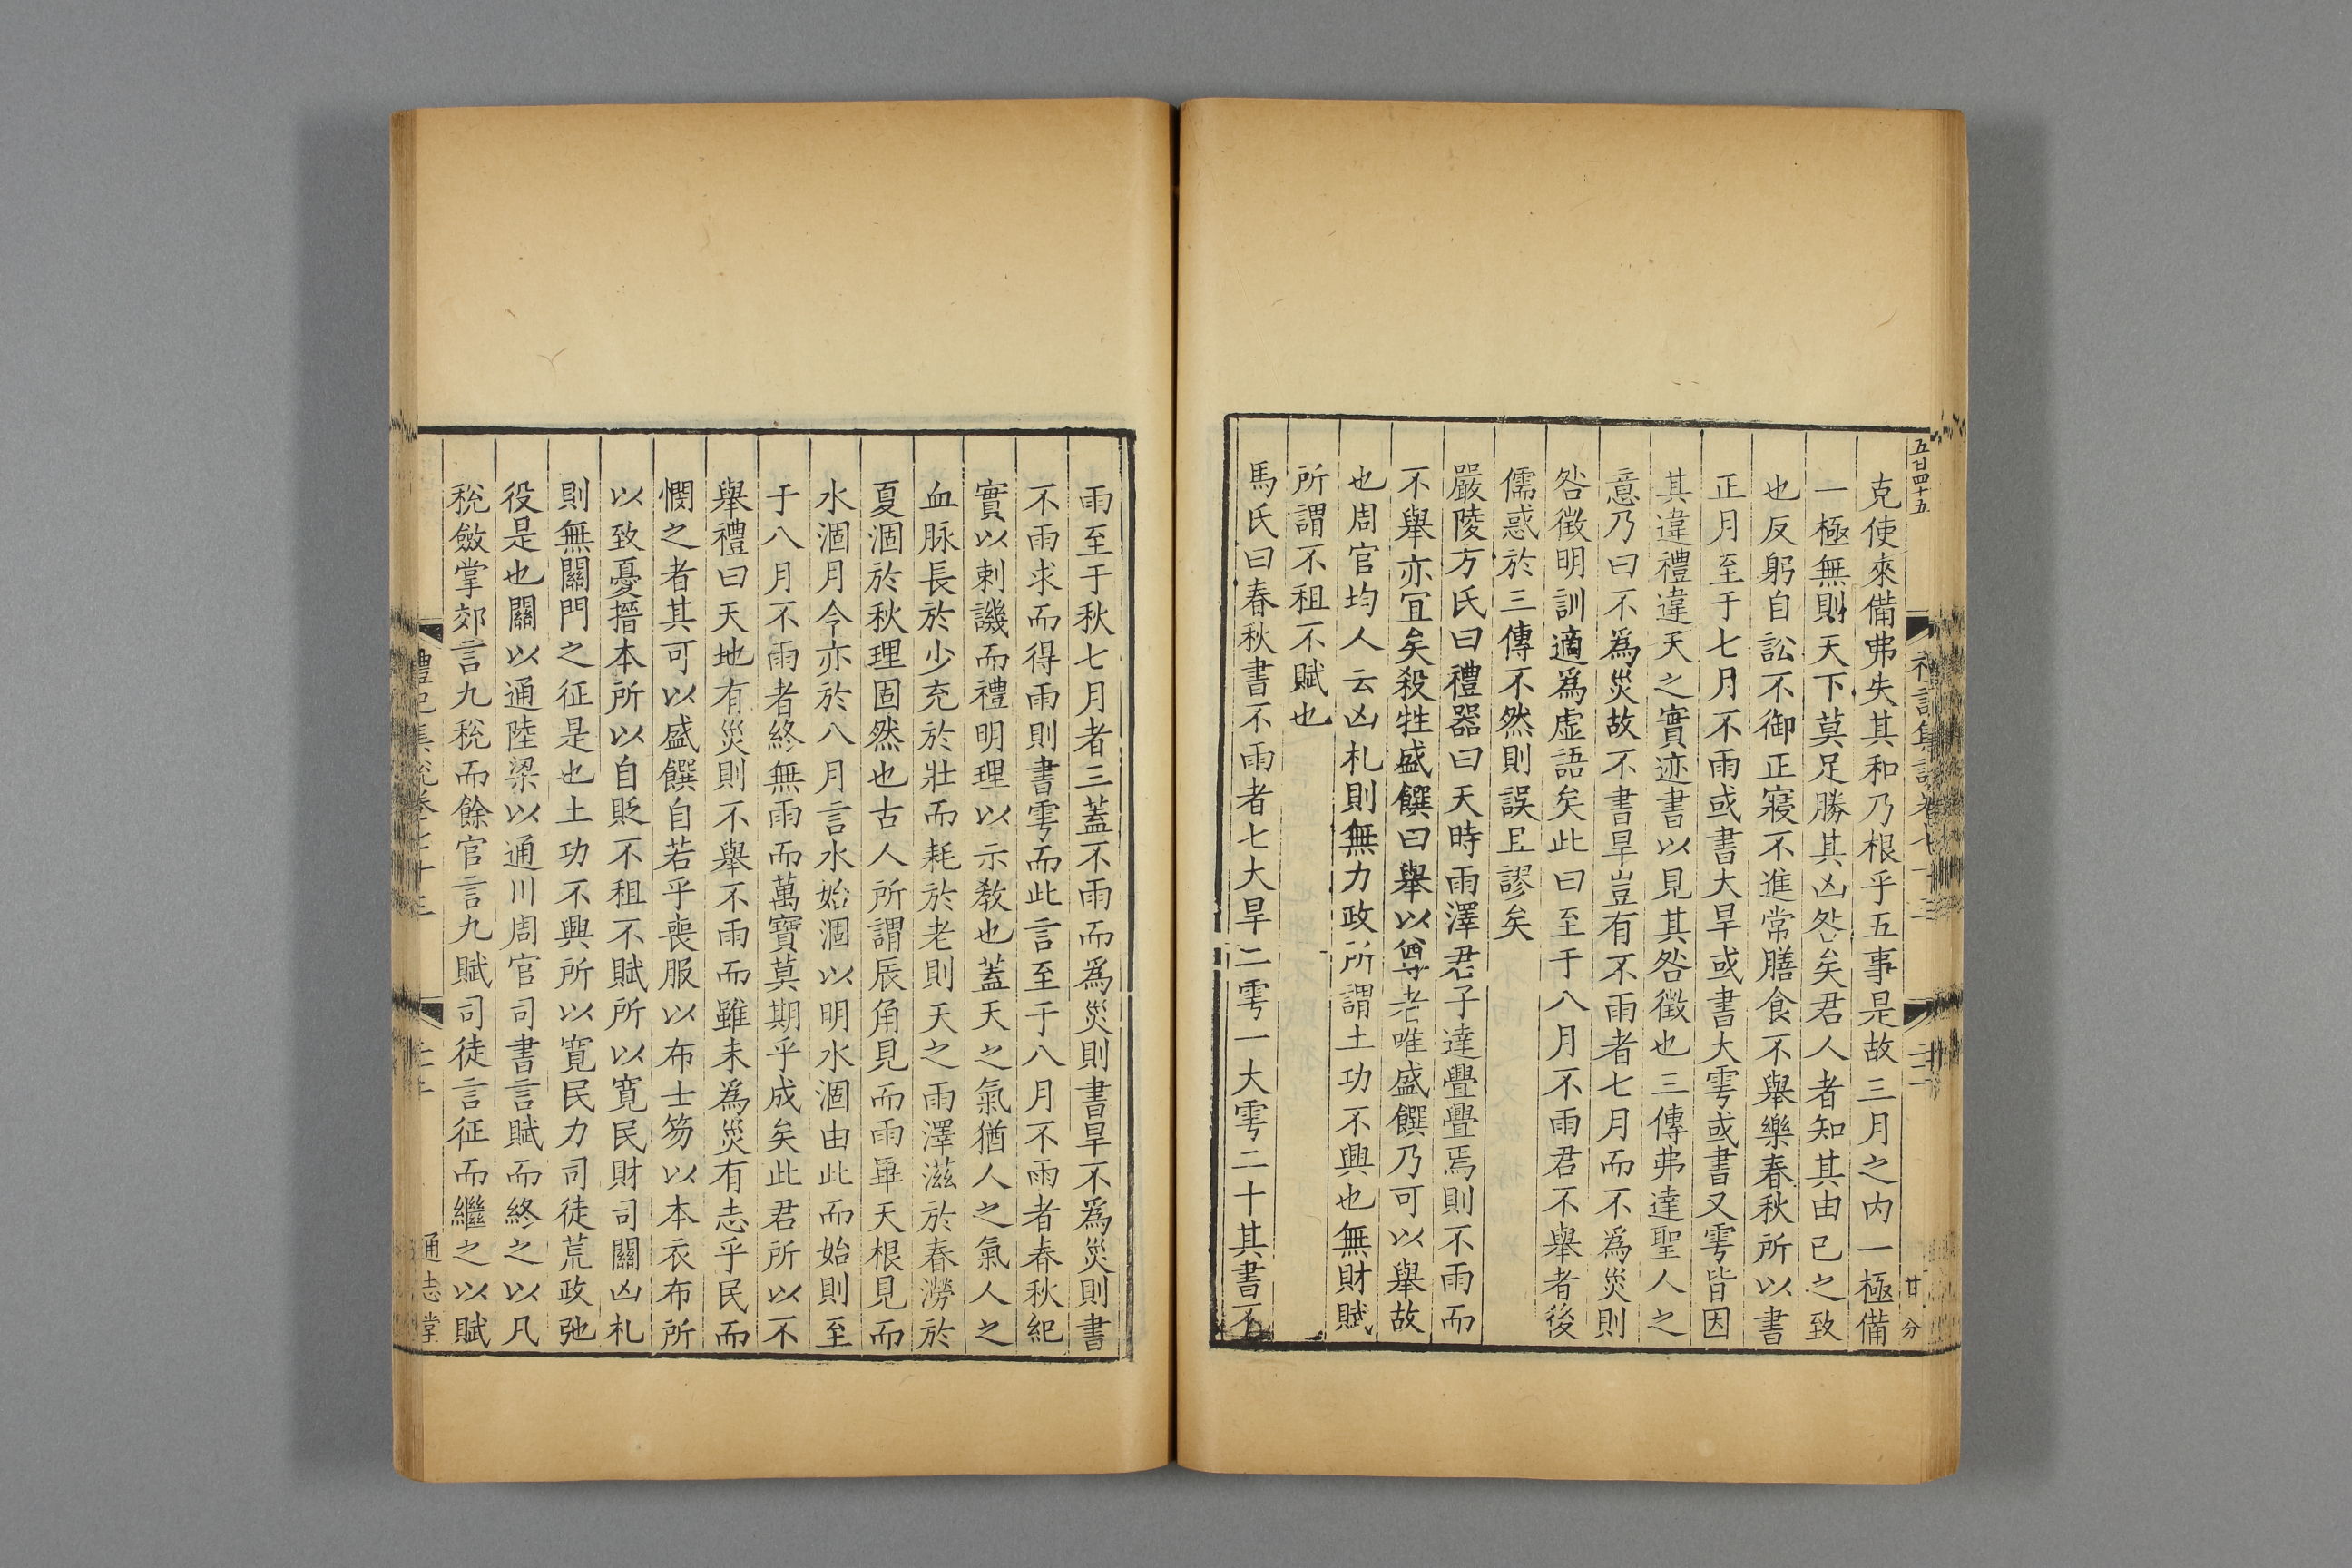 五廿四十五
克使來備弗失其和乃根乎五事是故三月之内一極備
一極無則天下莫足勝其凶咎矣君人者知其由已之致
也反躬自訟不御正寢不進常膳食不舉樂春秋所以書
正月至于七月不雨或書大旱或書大雩或書又雩皆因
其違禮違天之實迹書以見其咎徵也三傳弗達聖人之
意乃曰不爲災故不書旱豈有不雨者七月而不爲災則
咎徵明訓適爲虛語矣此曰至于八月不雨君不舉者後
儒惑於三傳不然則誤且謬矣
嚴陵方氏曰禮器曰天時雨澤君子達亹亹焉則不雨而
不舉亦宜矣殺牲盛饌曰舉以尊老唯盛饌乃可以舉故
也周官均人云凶札則無力政所謂土功不興也無財賦
所謂不租不賦也
馬氏曰春秋書不雨者七大旱二雩一大雩二十其書不
雨至于秋七月者三蓋不雨而爲災則書旱不爲災則書
不雨求而得雨則書雩而此言至于八月不雨者春秋紀
實以刺譏而禮明理以示教也蓋天之氣猶人之氣人之
血脉長於少充於壯而耗於老則天之雨澤滋於春澇於
夏涸於秋理固然也古人所謂辰角見而雨畢天根見而
水涸月令亦於八月言水始涸以明水涸由此而始則至
于八月不雨者終無雨而萬寶莫期乎成矣此君所以不
舉禮曰天地有災則不舉不雨而雖未爲災有志乎民而
憫之者其可以盛饌自若乎喪服以布士笏以本衣布所
以致憂搢本所以自貶不租不賦所以寬民財司關凶札
則無關門之征是也土功不興所以寬民力司徒荒政弛
役是也關以通陸梁以通川周官司書言賦而終之以凡
稅斂掌郊言九稅而餘官言九賦司徒言征而繼之以賦
通志堂